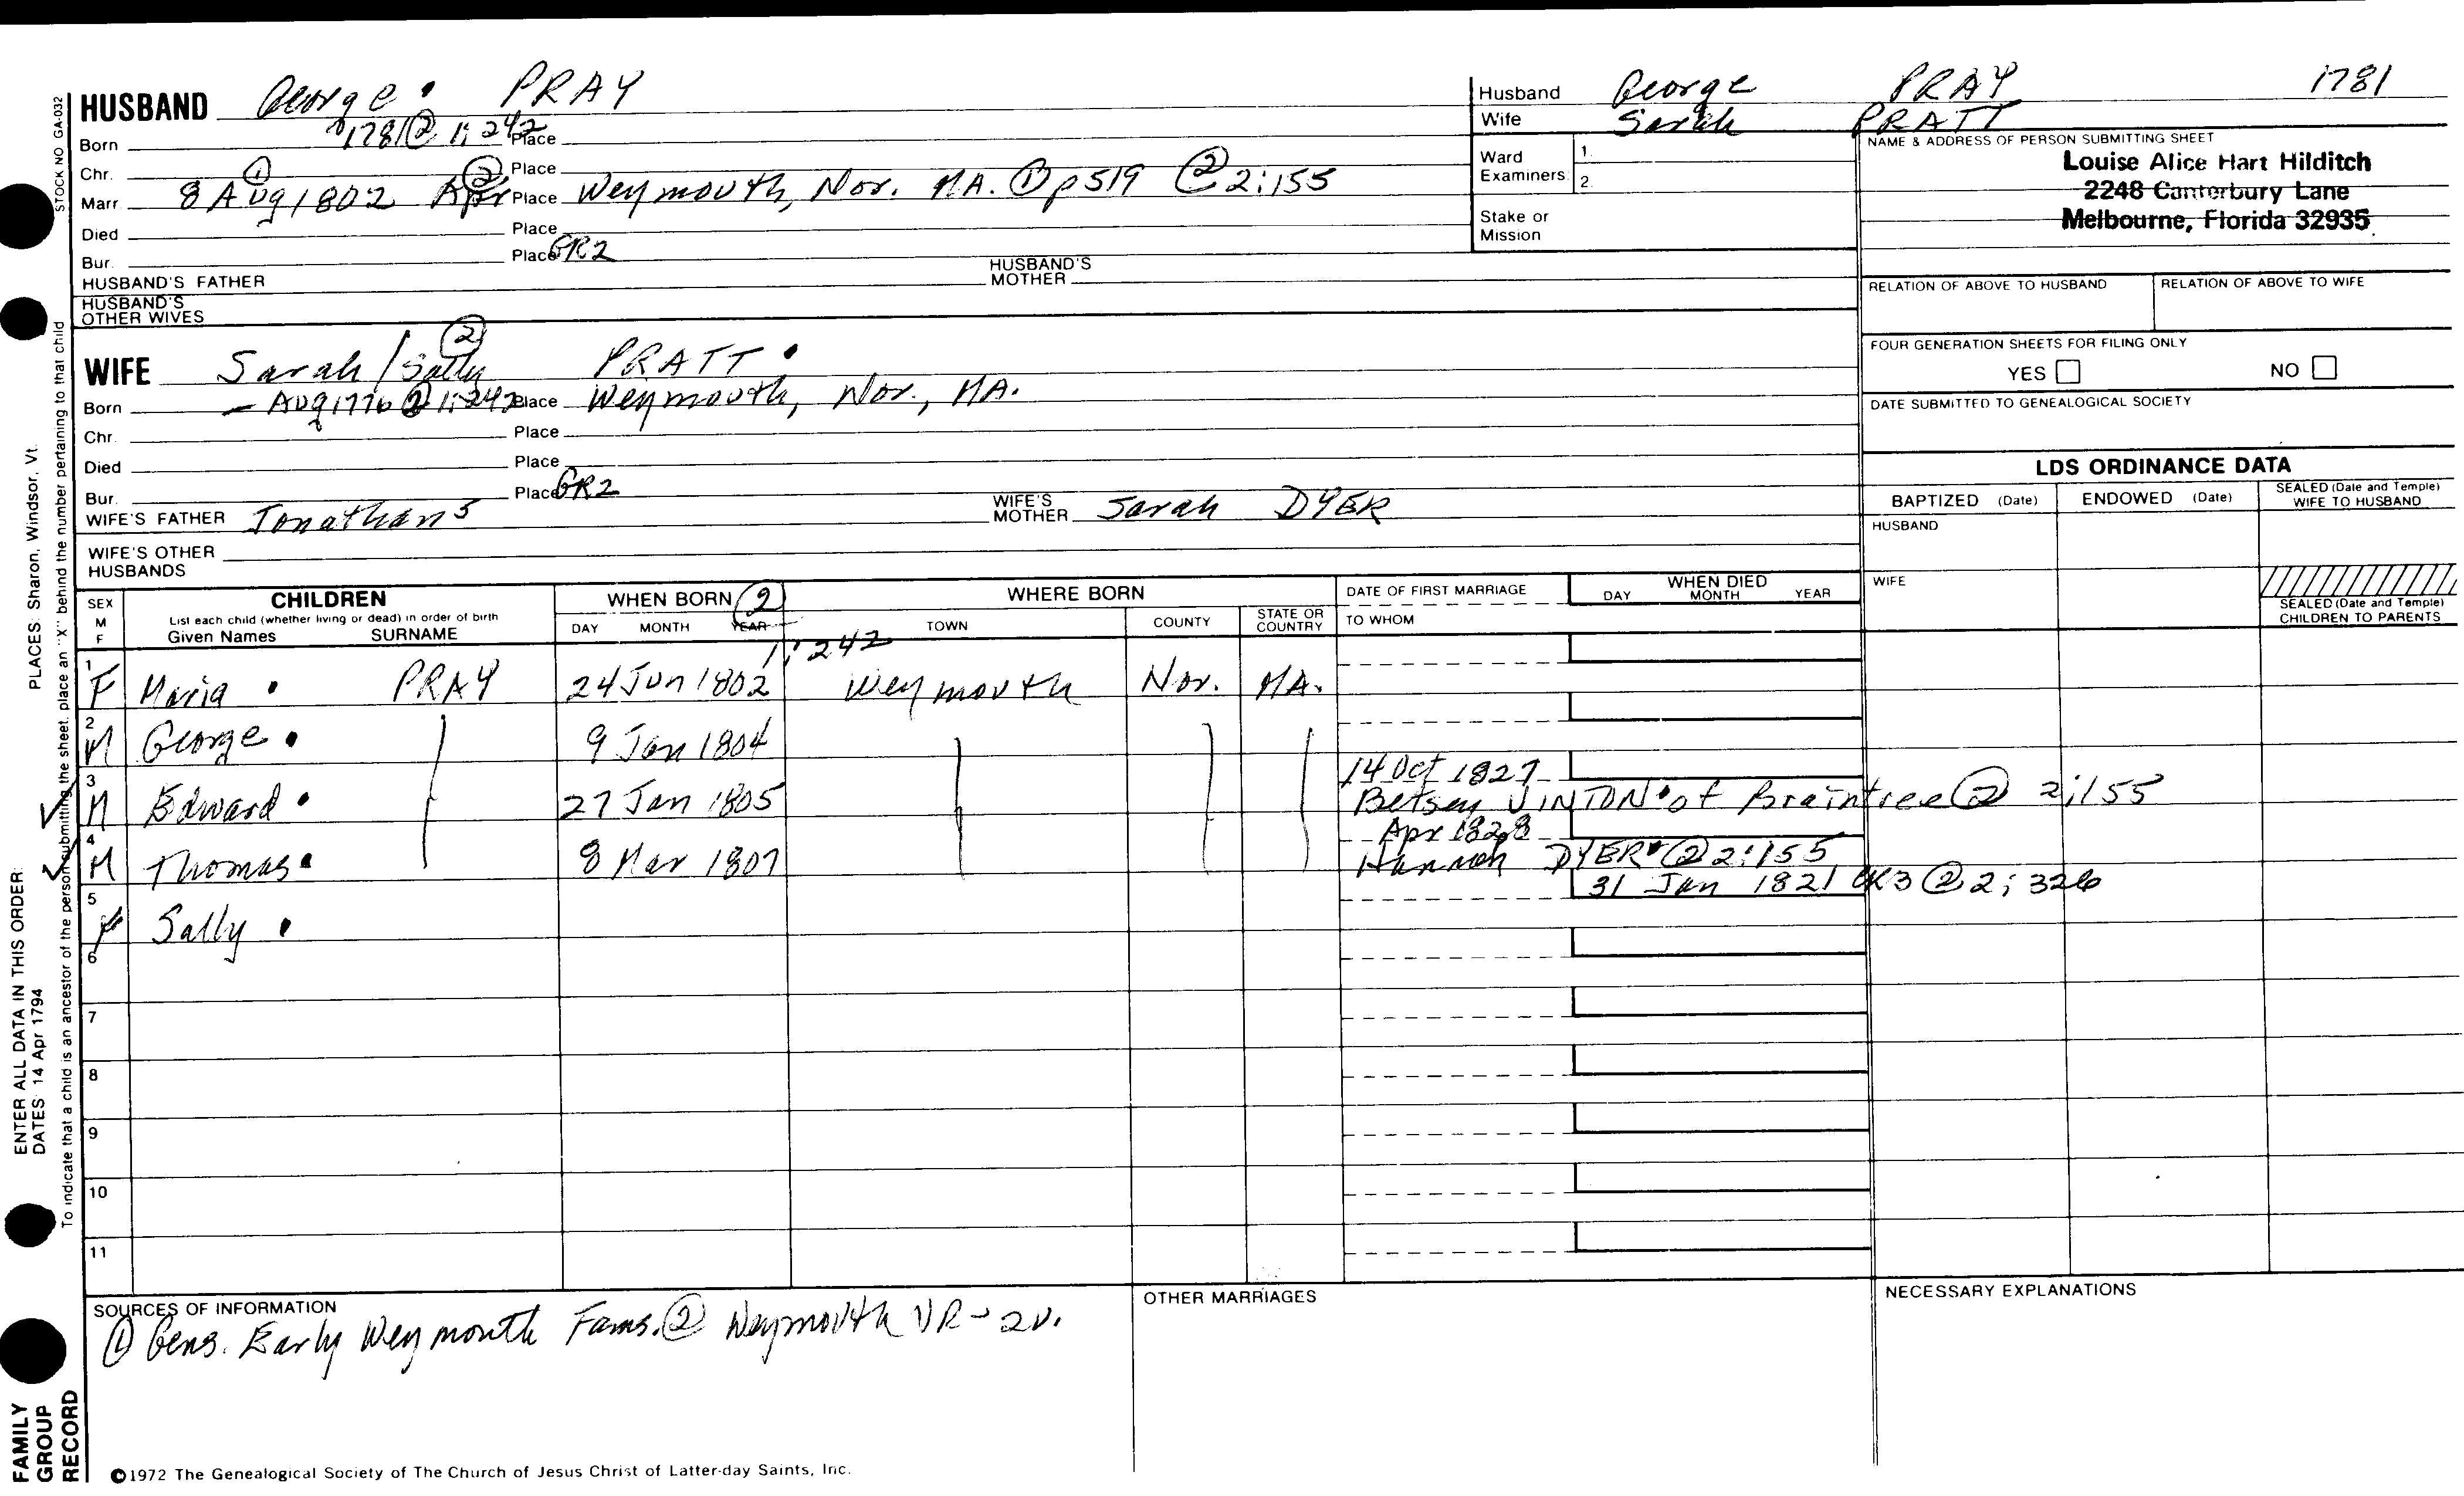 HUSBAND George PRAY
Born 1781 ② 1:242 Place
Chr. Place
Marr. 8 Aug 1802 ① Apr ② Place Weymouth, Nor. MA. ① p519 ② 2:155
Died Place
Bur. Place GR2
HUSBAND'S FATHER HUSBAND'S MOTHER
HUSBAND'S OTHER WIVES
WIFE Sarah / Sally ② PRATT
Born - Aug 1776 ② 1:242 Place Weymouth, Nor., MA.
Chr. Place
Died Place
Bur. Place GR2
WIFE'S FATHER Jonathan 5 WIFE'S MOTHER Sarah DYER
WIFE'S OTHER HUSBANDS
Husband George PRAY 1781
Wife Sarah PRATT
Ward Examiners 1. 2.
Stake or Mission
NAME & ADDRESS OF PERSON SUBMITTING SHEET
Louise Alice Hart Hilditch
2248 Canterbury Lane
Melbourne, Florida 32935
RELATION OF ABOVE TO HUSBAND RELATION OF ABOVE TO WIFE
FOUR GENERATION SHEETS FOR FILING ONLY
YES NO
DATE SUBMITTED TO GENEALOGICAL SOCIETY
LDS ORDINANCE DATA
BAPTIZED (Date) ENDOWED (Date) SEALED (Date and Temple) WIFE TO HUSBAND
HUSBAND
WIFE
SEALED (Date and Temple) CHILDREN TO PARENTS
SEX M F
CHILDREN
List each child (whether living or dead) in order of birth
Given Names SURNAME
WHEN BORN ②
DAY MONTH YEAR
1:242
WHERE BORN
TOWN COUNTY STATE OR COUNTRY
DATE OF FIRST MARRIAGE
TO WHOM
WHEN DIED
DAY MONTH YEAR
1 F Maria PRAY 24 Jun 1802 Weymouth Nor. MA.
2 M George 9 Jan 1804
3 M Edward 27 Jan 1805 14 Oct 1827
Betsey VINTON of Braintree ② 2:155
4 M Thomas 8 Mar 1807 Apr 1828
Hannah DYER ② 2:155
5 F Sally 31 Jan 1821 CR3 ② 2:326
6
7
8
9
10
11
SOURCES OF INFORMATION
① Gens. Early Weymouth Fams. ② Weymouth VR - 2v.
OTHER MARRIAGES
NECESSARY EXPLANATIONS
©1972 The Genealogical Society of The Church of Jesus Christ of Latter-day Saints, Inc.
STOCK NO GA-032
PLACES: Sharon, Windsor, Vt.
To indicate that a child is an ancestor of the person submitting the sheet, place an "X" behind the number pertaining to that child
ENTER ALL DATA IN THIS ORDER:
DATES: 14 Apr 1794
FAMILY
GROUP
RECORD